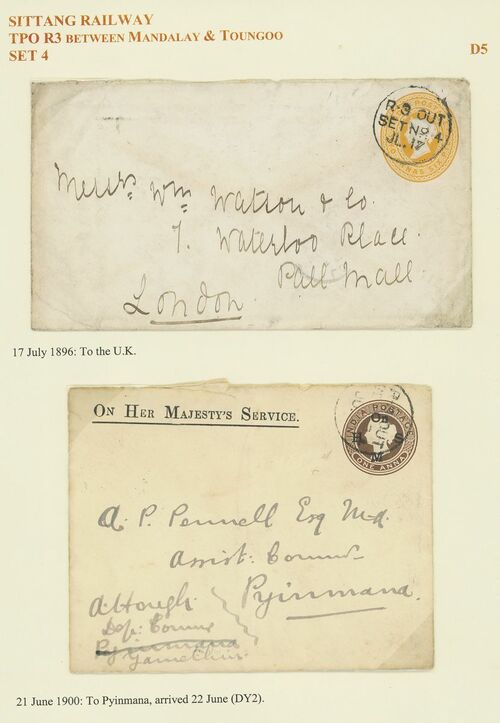 SITTANG RAILWAY
TPO R3 BETWEEN MANDALAY & TOUNGOO
SET 4
D5
R-3 OUT
SET NO. 4
JL. 17
Messrs. Wm Watson & Co.
7. Waterloo Place.
Pall Mall.
London.
17 July 1896: To the U.K.
ON HER MAJESTY'S SERVICE.
INDIA POSTAGE
On
H S
M
ONE ANNA
A. P. Pennell Esq M.A.
Assist: Commr
Pyinmana.
A Hough
Dep: Commr
Pyinmana
Yamethin.
21 June 1900: To Pyinmana, arrived 22 June (DY2).